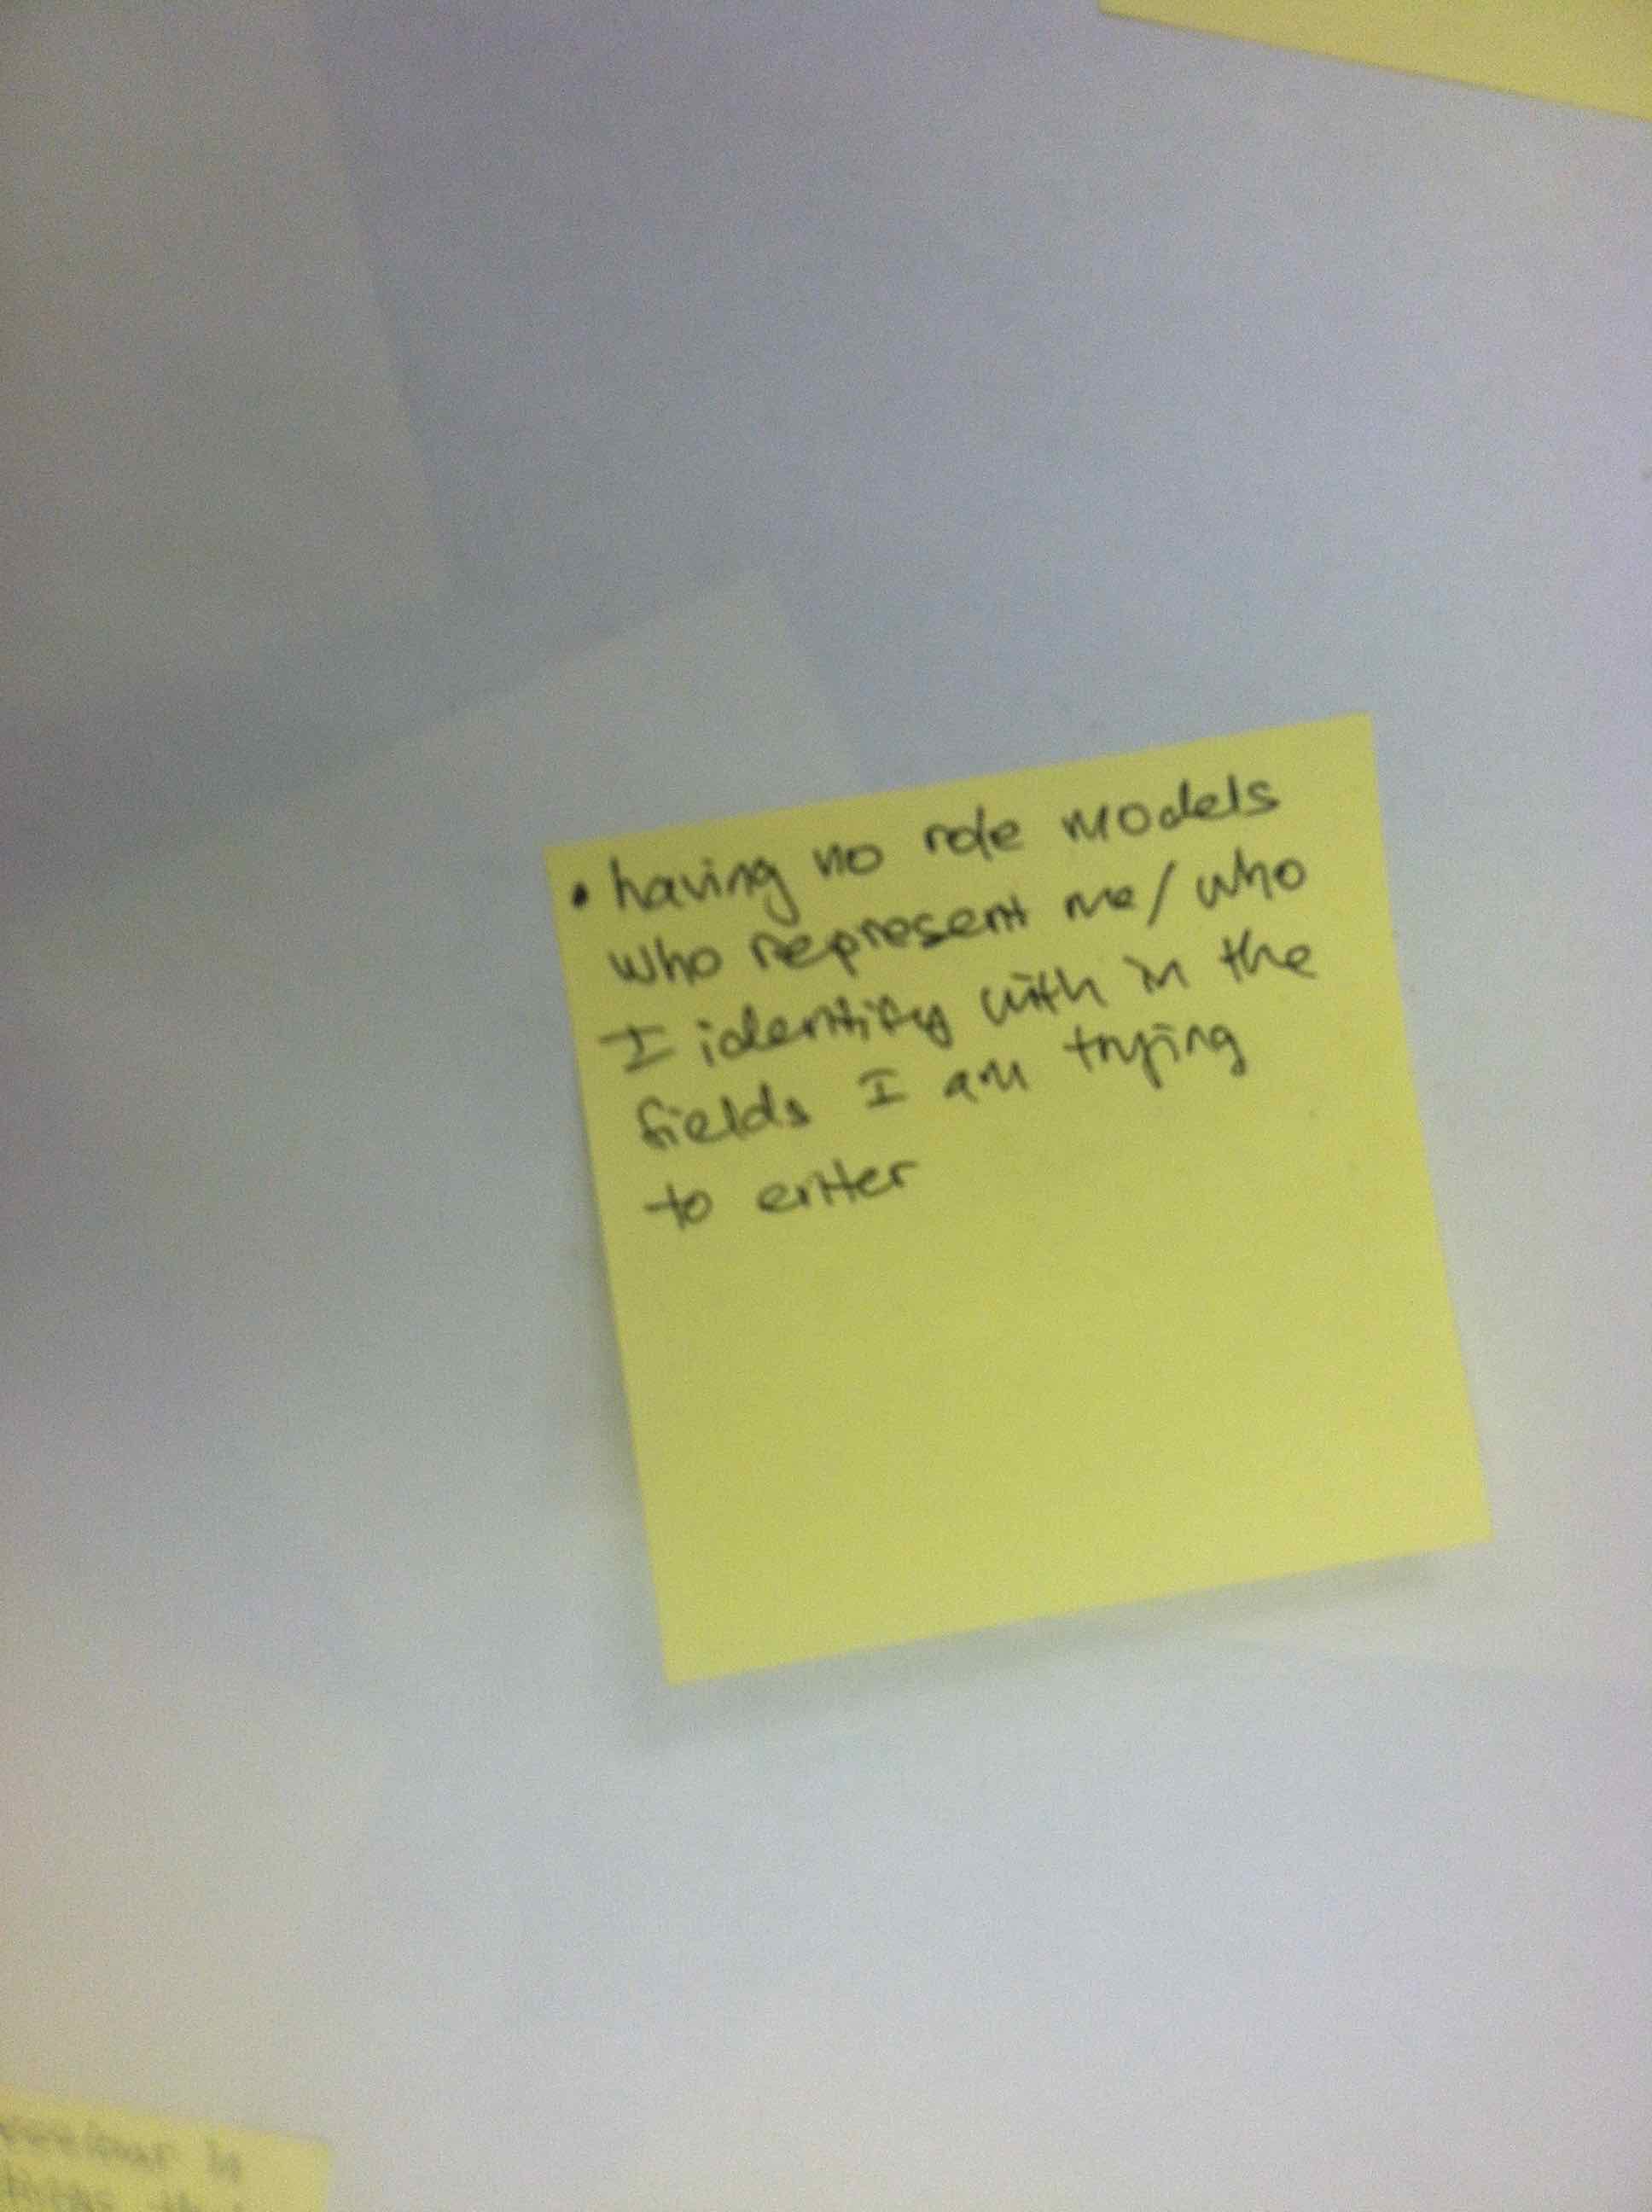 • having no role models
who represent me/who
I identify with in the
fields I am trying
to enter